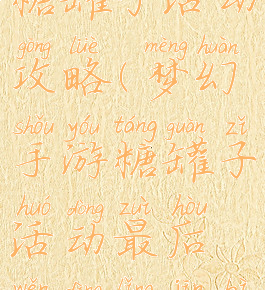 糖罐子活动
gōng lüè mèng huàn
攻略(梦幻
shǒu yóu táng guàn zi
手游糖罐子
huó dòng zuì hòu
活动最后